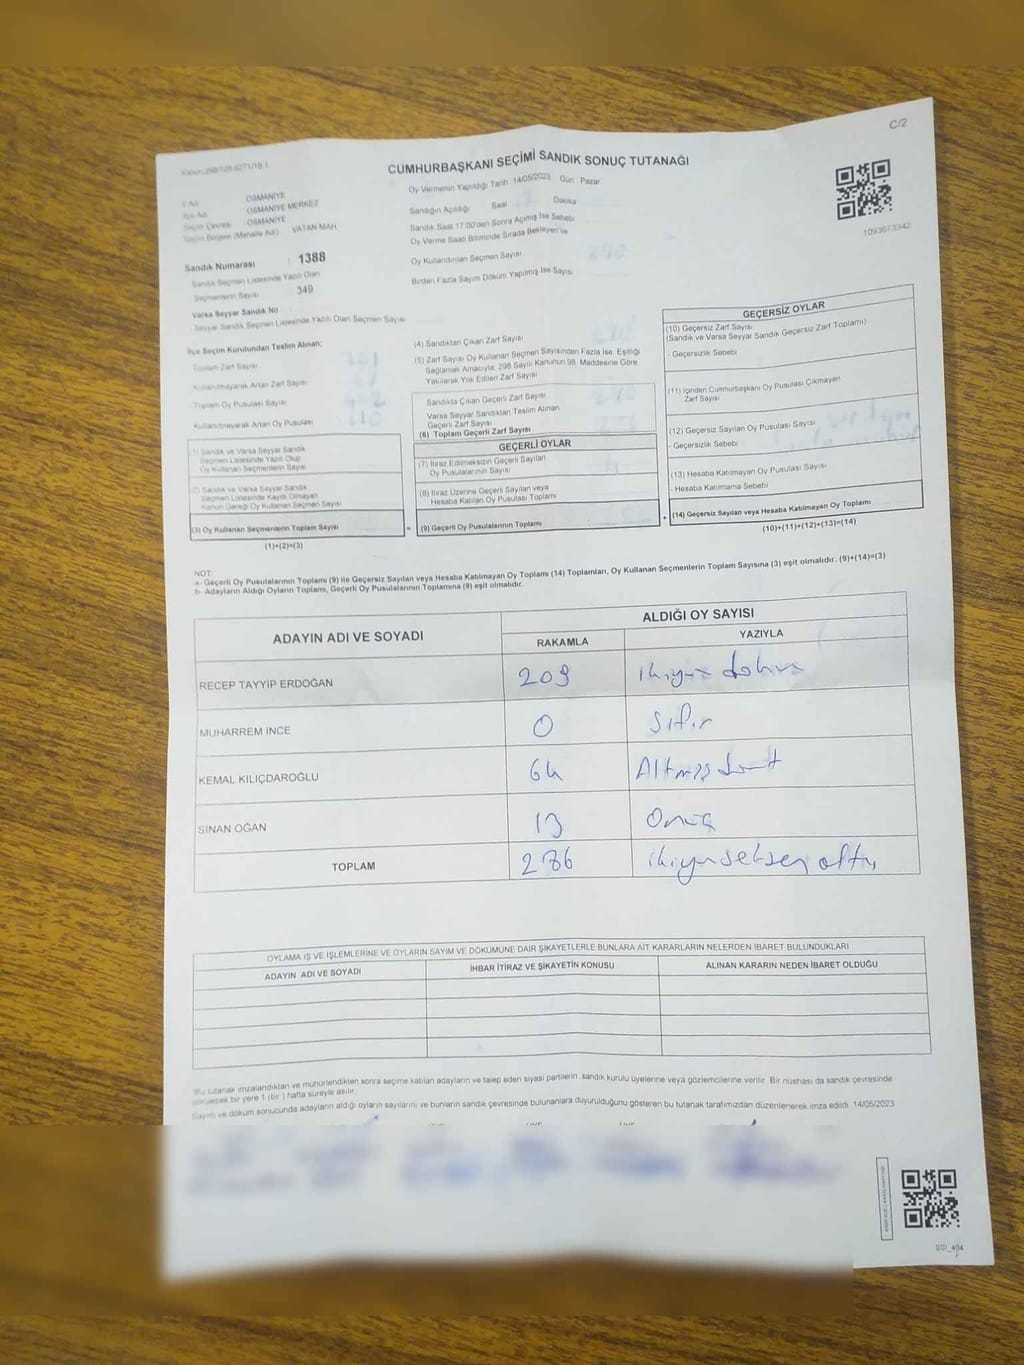 C/2
CUMHURBAŞKANI SEÇİMİ SANDIK SONUÇ TUTANAĞI
1093673342
OSMANİYE
OSMANİYE MERKEZ
Seçim Çevresi : OSMANİYE
Seçim Bölgesi (Mahalle Adı) VATAN MAH
Sandık Numarası : 1388
Sandık Seçmen Listesinde Yazılı Olan
Seçmenlerin Sayısı : 349
Varsa Seyyar Sandık No
Seyyar Sandık Seçmen Listesinde Yazılı Olan Seçmen Sayısı
Oy Vermenin Yapıldığı Tarih 14/05/2023 Gün : Pazar
Sandığın Açıldığı Saat Dakika
Sandık Saat 17:00'den Sonra Açılmış İse Sebebi
Oy Verme Saati Bitiminde Sırada Bekleyen ve
Oy Kullandırılan Seçmen Sayısı
Birden Fazla Sayım Döküm Yapılmış İse Sayısı
İlçe Seçim Kurulundan Teslim Alınan;
Toplam Zarf Sayısı
Kullanılmayarak Artan Zarf Sayısı
Toplam Oy Pusulası Sayısı
Kullanılmayarak Artan Oy Pusulası
(1) Sandık ve Varsa Seyyar Sandık
Seçmen Listesinde Yazılı Olup
Oy Kullanan Seçmenlerin Sayısı
(2) Sandık ve Varsa Seyyar Sandık
Seçmen Listesinde Kaydı Olmayan
Kanun Gereği Oy Kullanan Seçmen Sayısı
(3) Oy Kullanan Seçmenlerin Toplam Sayısı
(1)+(2)=(3)
(4) Sandıktan Çıkan Zarf Sayısı
(5) Zarf Sayısı Oy Kullanan Seçmen Sayısından Fazla İse, Eşitliği
Sağlamak Amacıyla, 298 Sayılı Kanunun 98. Maddesine Göre
Yakılarak Yok Edilen Zarf Sayısı
Sandıkta Çıkan Geçerli Zarf Sayısı
Varsa Seyyar Sandıktan Teslim Alınan
Geçerli Zarf Sayısı
(6) Toplam Geçerli Zarf Sayısı
GEÇERLİ OYLAR
(7) İtiraz Edilmeksizin Geçerli Sayılan
Oy Pusulalarının Sayısı
(8) İtiraz Üzerine Geçerli Sayılan veya
Hesaba Katılan Oy Pusulası Toplamı
= (9) Geçerli Oy Pusulalarının Toplamı
GEÇERSİZ OYLAR
(10) Geçersiz Zarf Sayısı
(Sandık ve Varsa Seyyar Sandık Geçersiz Zarf Toplamı)
- Geçersizlik Sebebi
(11) İçinden Cumhurbaşkanı Oy Pusulası Çıkmayan
Zarf Sayısı
(12) Geçersiz Sayılan Oy Pusulası Sayısı
- Geçersizlik Sebebi
(13) Hesaba Katılmayan Oy Pusulası Sayısı
- Hesaba Katılmama Sebebi
+ (14) Geçersiz Sayılan veya Hesaba Katılmayan Oy Toplamı
(10)+(11)+(12)+(13)=(14)
NOT:
a- Geçerli Oy Pusulalarının Toplamı (9) ile Geçersiz Sayılan veya Hesaba Katılmayan Oy Toplamı (14) Toplamları, Oy Kullanan Seçmenlerin Toplam Sayısına (3) eşit olmalıdır. (9)+(14)=(3)
b- Adayların Aldığı Oyların Toplamı, Geçerli Oy Pusulalarının Toplamına (9) eşit olmalıdır.
ADAYIN ADI VE SOYADI ALDIĞI OY SAYISI
RAKAMLA YAZIYLA
RECEP TAYYİP ERDOĞAN 209 ikiyüz dokuz
MUHARREM İNCE 0 Sıfır
KEMAL KILIÇDAROĞLU 64 Altmış dört
SİNAN OĞAN 13 Onüç
TOPLAM 286 ikiyüz seksen altı
OYLAMA İŞ VE İŞLEMLERİNE VE OYLARIN SAYIM VE DÖKÜMÜNE DAİR ŞİKAYETLERLE BUNLARA AİT KARARLARIN NELERDEN İBARET BULUNDUKLARI
ADAYIN ADI VE SOYADI İHBAR İTİRAZ VE ŞİKAYETİN KONUSU ALINAN KARARIN NEDEN İBARET OLDUĞU
*Bu tutanak imzalandıktan ve mühürlendikten sonra seçime katılan adayların ve talep eden siyasi partilerin sandık kurulu üyelerine veya gözlemcilerine verilir. Bir nüshası da sandık çevresinde
görülecek bir yere 1 (bir) hafta süreyle asılır.
Sayım ve döküm sonucunda adayların aldığı oyların sayılarını ve bunların sandık çevresinde bulunanlara duyurulduğunu gösteren bu tutanak tarafımızdan düzenlenerek imza edildi. 14/05/2023